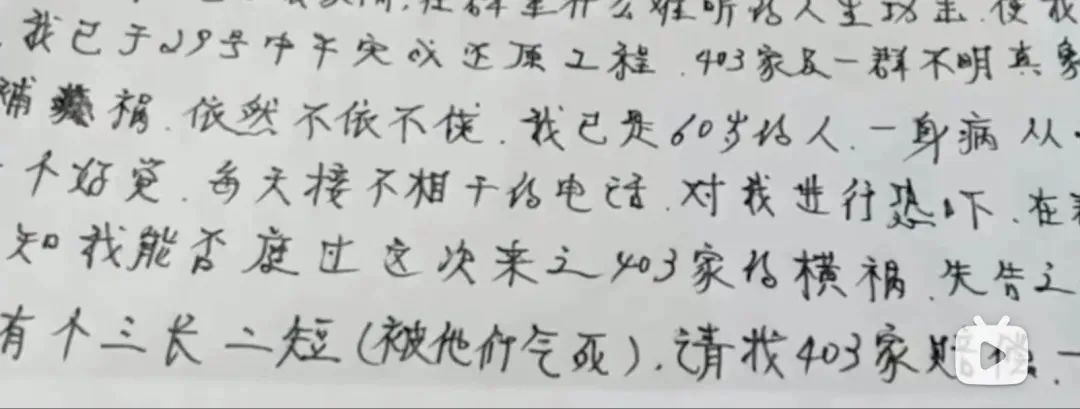 在群里什么难听的人生攻击.使我
我已于29号中午完成还原工程.403家及一群不明真象
祸.依然不依不侥.我已是60岁的人.一身病从
个好觉.每天接不相干的电话.对我进行恐吓.在
知我能否度过这次来之403家的横祸.先告之
有个三长二短(被他们气死).请找403家赔偿.一